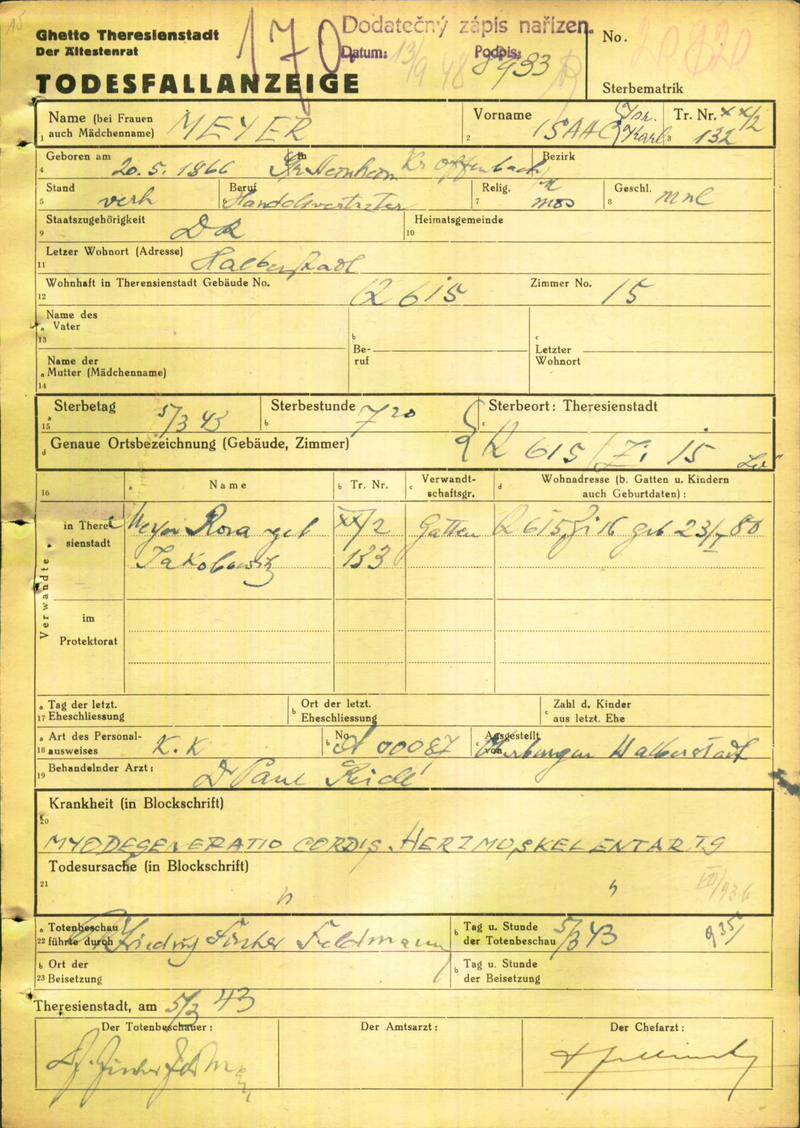 Ghetto Theresienstadt
Der Ältestenrat
TODESFALLANZEIGE
170
Dodatečný zápis nařízen.
Datum: 13/9 48 Podpis:
8933
No. 20820
Sterbematrik
Name (bei Frauen auch Mädchenname) MEYER
1
Vorname ISAAC Isr. Karl
2
Tr. Nr. XX/2 132
3
Geboren am 20.5.1866 in Kr Offenbach
4
Bezirk
Stand verh
5
Beruf Handelsvertreter
Relig. mos
7
Geschl. mnl
8
Staatszugehörigkeit DR
9
Heimatsgemeinde
10
Letzer Wohnort (Adresse) Halberstadt
11
Wohnhaft in Theresienstadt Gebäude No. Q 615
12
Zimmer No. 15
a Name des Vater
13
b Beruf
c Letzter Wohnort
a Name der Mutter (Mädchenname)
14
a Sterbetag 5/3 43
15
b Sterbestunde 7 20
c Sterbeort: Theresienstadt
d Genaue Ortsbezeichnung (Gebäude, Zimmer) Q 615 / Zi 15
16
a Name
b Tr. Nr.
c Verwandtschaftsgr.
d Wohnadresse (b. Gatten u. Kindern auch Geburtdaten):
Verwandte
in Theresienstadt
Meyer Rosa geb XX/2 Gatten Q 615 Zi 16 geb 23/ 80
133
im Protektorat
a Tag der letzt.
17 Eheschliessung
b Ort der letzt. Eheschliessung
c Zahl d. Kinder aus letzt. Ehe
a Art des Personal-
18 ausweises K.K
b No. A 00087
c Ausgestellt von Halberstadt
19 Behandelnder Arzt:
Krankheit (in Blockschrift)
20
MYODEGENERATIO CORDIS. HERZMUSKELENTARTG
Todesursache (in Blockschrift)
21
" "
a Totenbeschau
22 führte durch Feldmann
b Tag u. Stunde der Totenbeschau 5/3 43 9 35
b Ort der
23 Beisetzung
b Tag u. Stunde der Beisetzung
Theresienstadt, am 5/3 43
Der Totenbeschauer:
Der Amtsarzt:
Der Chefarzt: